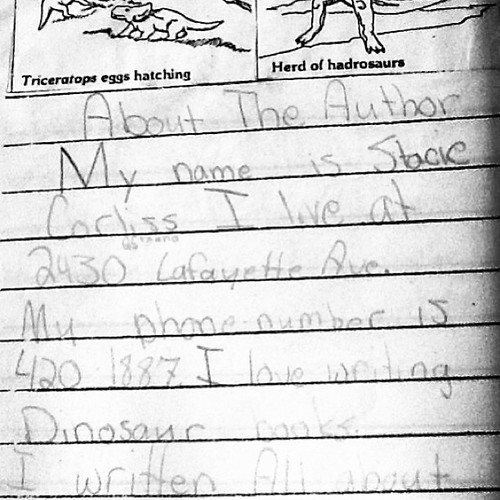 Triceratops eggs hatching
Herd of hadrosaurs
About The Author
My name is Stacie
Corliss I live at
2430 Lafayette Ave.
My phone number is
420 1887 I love writing
Dinosaur books.
I written All about